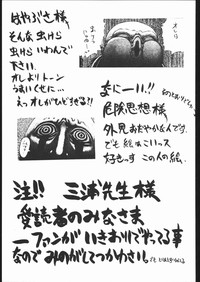 はやぶさ様
そんな虫けら
虫けらいわんで
下さい。
オレよりトーン
うまいくせに…
なにーい!!
危険思想様
外見おだやかな人です。
でも絵はこいっス
好きっす この人の絵。
注!! 三浦先生様
愛読者のみなさま
一ファンが いきおいでやってる事
なので みのがしてつかわさい。